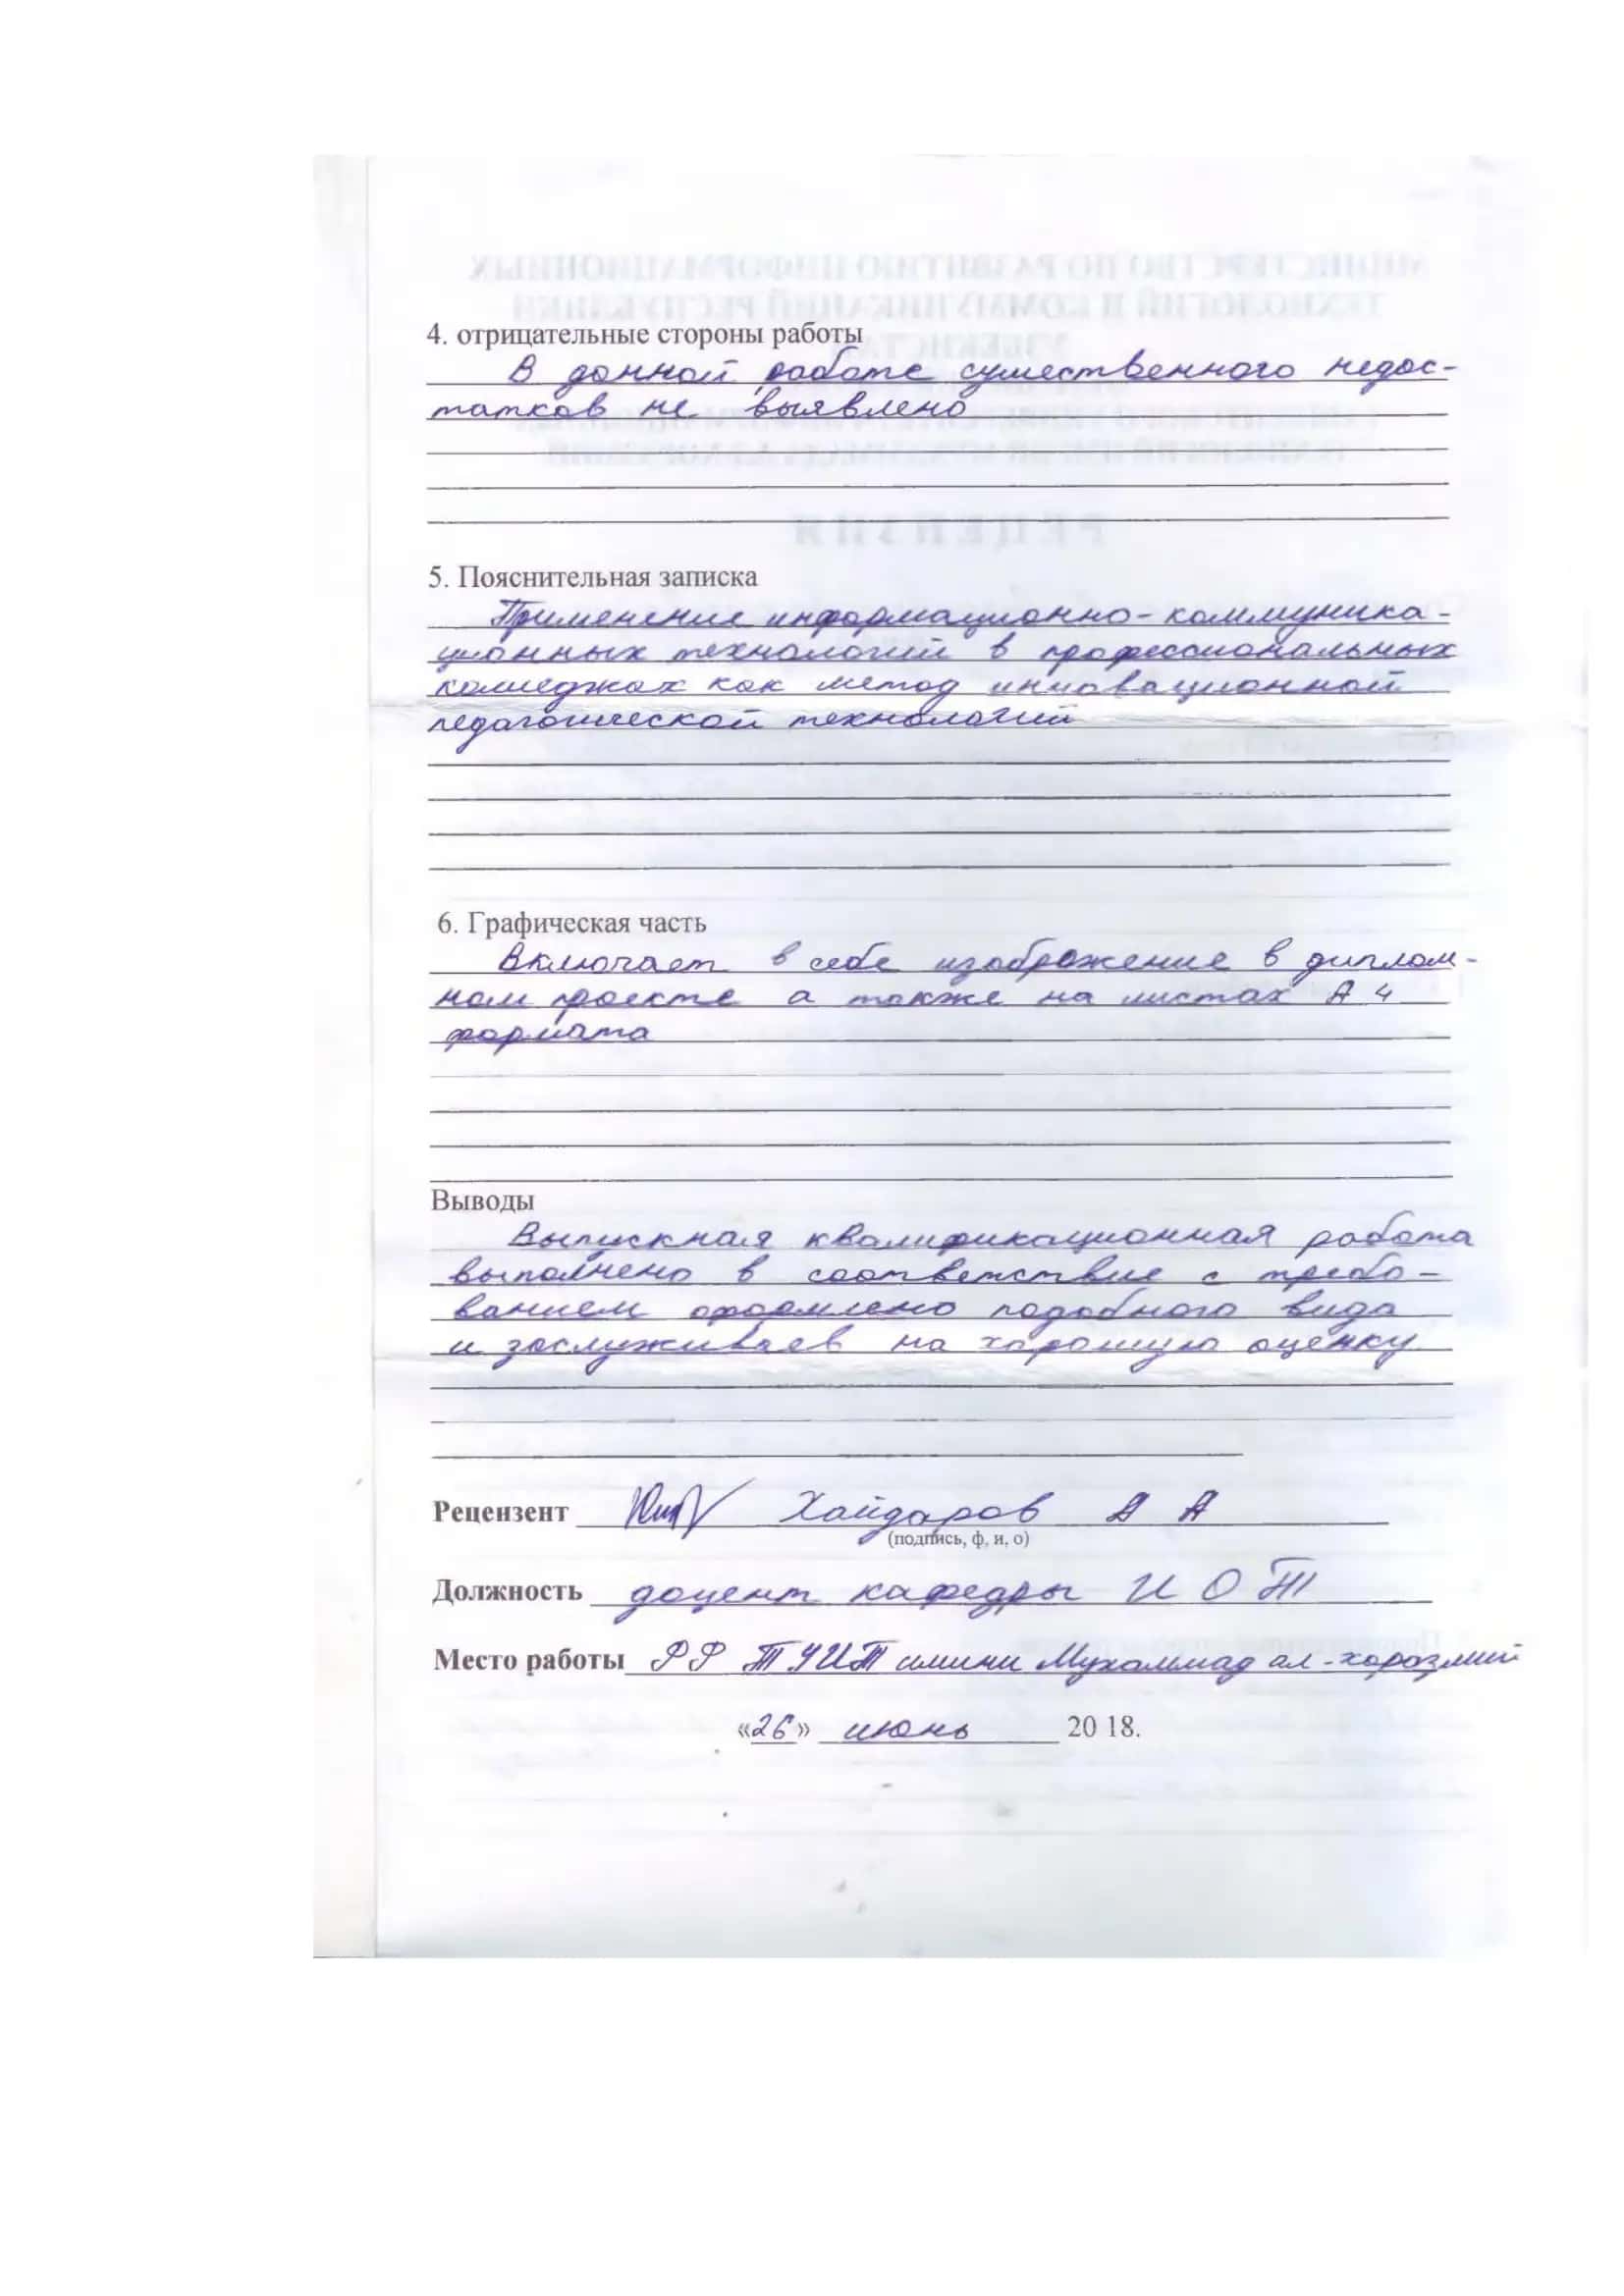 4. отрицательные стороны работы
В данной работе существенного недос-
татков не выявлено
5. Пояснительная записка
Применение информационно-коммуника-
ционных технологий в профессиональных
колледжах как метод инновационной
педагогической технологий
6. Графическая часть
Включает в себе изображение в диплом-
ном проекте а также на листах А 4
формата
Выводы
Выпускная квалификационная работа
выполнено в соответствие с требо-
ванием оформлено подобного вида
и заслуживаев на хорошую оценку
Рецензент Хайдаров А А
(подпись, ф, и, о)
Должность доцент кафедры И О Т
Место работы ФФ ТУИТ имини Мухаммад ал-хоразмий
«26» июнь 20 18.
РЕЦЕНЗИЯ